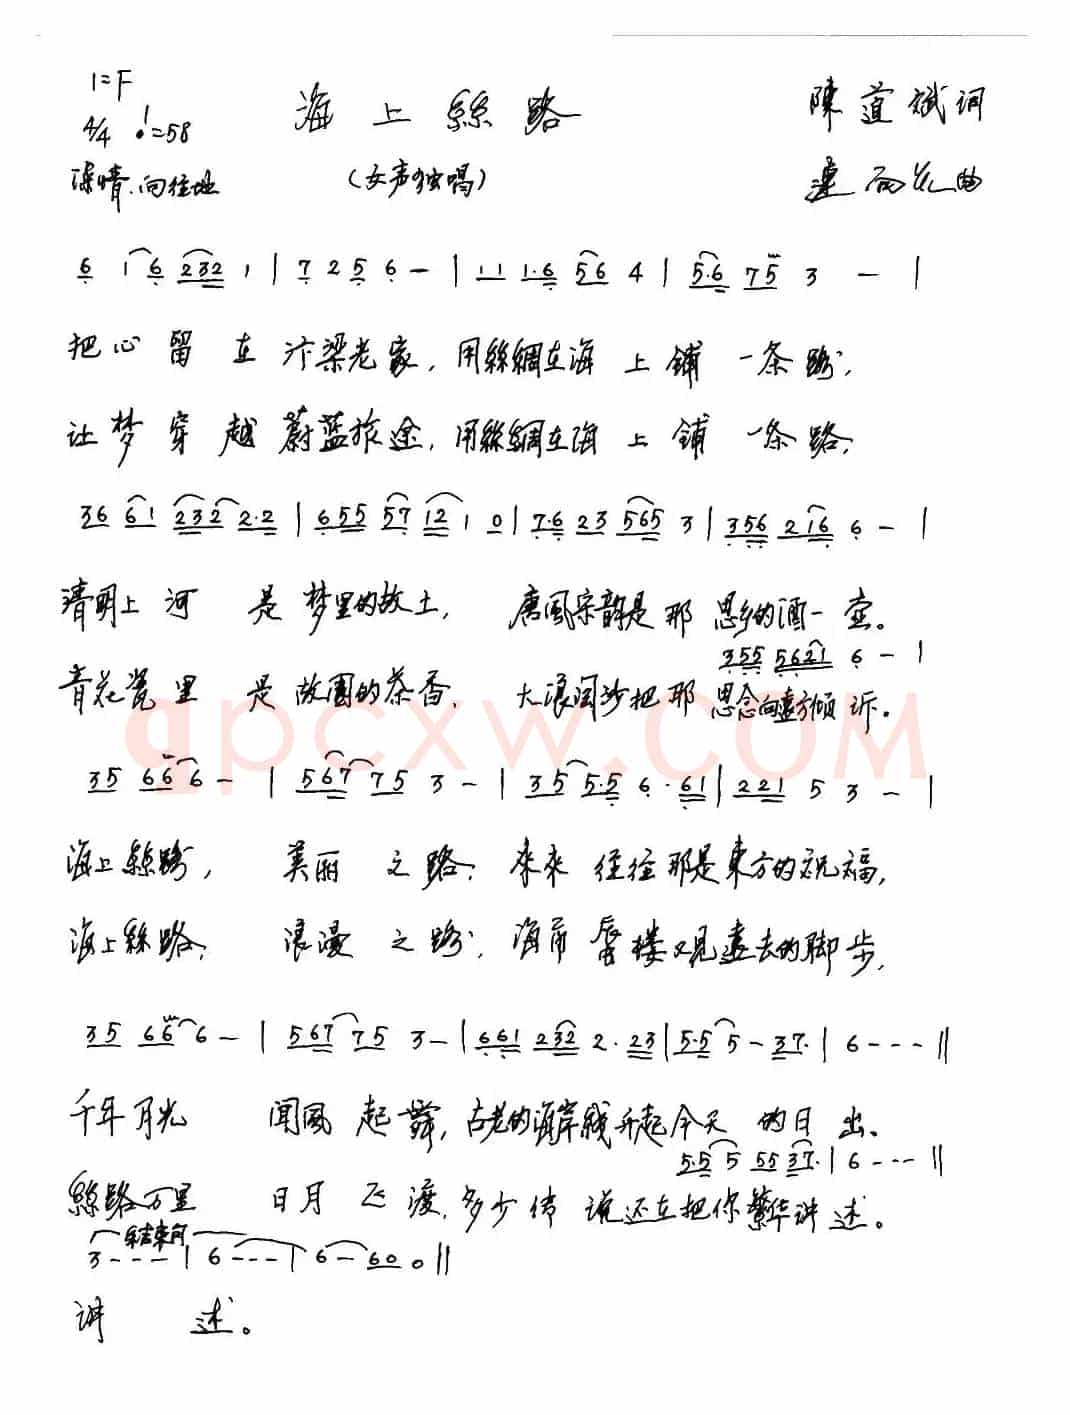 1=F
4/4 ♩=58
海上絲路
陳道斌词
深情.向往地
(女声独唱)
曲
6 1 6 232 1 | 7 2 5 6 - | 11 1·6 56 4 | 5·6 75 3 - |
把心留在汴梁老家,用絲綢在海上鋪一条路,
让梦穿越蔚蓝旅途,用絲綢在海上鋪一条路,
36 61 232 2·2 | 655 57 12 1 0 | 7·6 23 565 3 | 356 216 6 - |
清明上河 是梦里的故土, 唐風宋韵是那思乡的酒一壶。
355 5621 6 - |
青花瓷里 是故園的茶香, 大浪闻沙把那思念向遠方倾诉。
35 66 6 - | 567 75 3 - | 35 5·5 6·61 | 221 5 3 - |
海上絲路, 美丽之路,来來往往那是東方的祝福,
海上絲路, 浪漫之路,海市蜃楼又见遠去的脚步,
35 66 6 - | 567 75 3 - | 661 232 2·23 | 5·5 5 - 37· | 6 - - - ||
千年月光 闻風起舞,古老的海岸綫升起今天的日出、
5·5 5 55 37· | 6 - - - ||
絲路万里 日月飞渡,多少传说还在把你繁华讲述。
结束句
3 - - - | 6 - - - | 6 - 60 0 ||
讲述。
apcxw.COM